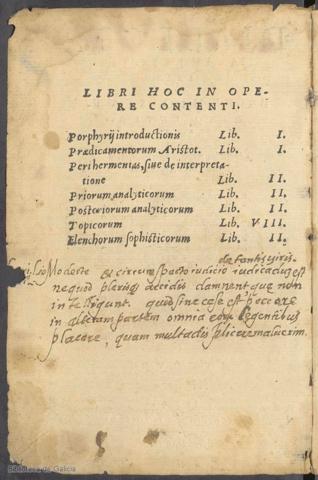 LIBRI HOC IN OPE-
RE CONTENTI.
Porphyrij introductionis Lib. I.
Prædicamentorum Aristot. Lib. I.
Perihermenias, siue de interpreta-
tione Lib. II.
Priorum analyticorum Lib. II.
Posteriorum analyticorum Lib. II.
Topicorum Lib. VIII.
Elenchorum sophisticorum Lib. II.
de tantis uiris
Modeste et circumspecto iudicio
ne quod plærisq accidit damnent quæ non
intelligunt. quod si necesse est
in alteram partem omnia legentibus
placere, quam multa displicere maluerim.
Biblioteca de Galicia